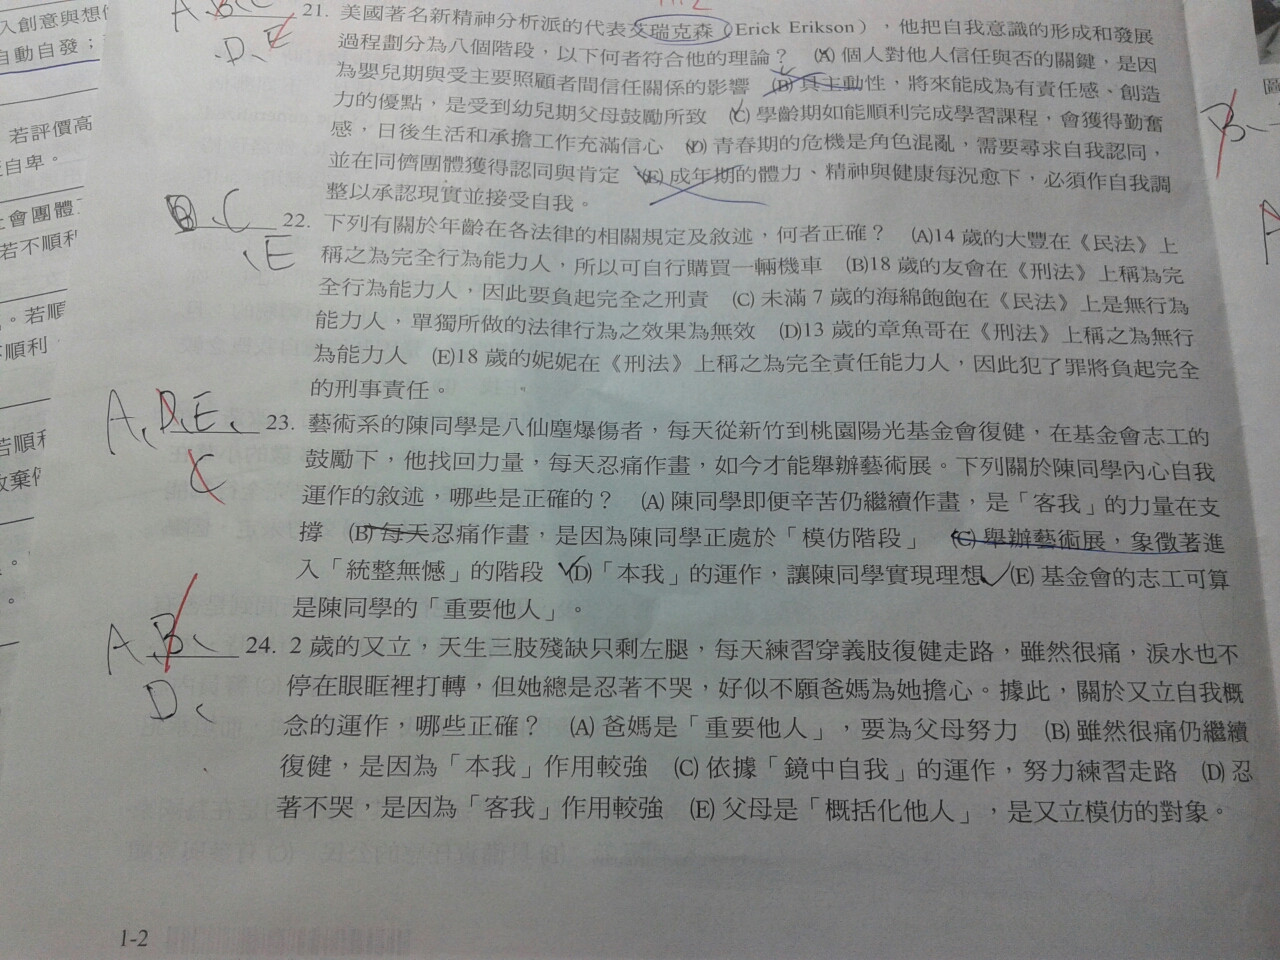 入創意與想像
自動自發；
若評價高
自卑。
社會團體
若不順利
。若順
不順利
若順利
放棄
A B C
D、E
21. 美國著名新精神分析派的代表艾瑞克森（Erick Erikson），他把自我意識的形成和發展
過程劃分為八個階段，以下何者符合他的理論？ (A) 個人對他人信任與否的關鍵，是因
為嬰兒期與受主要照顧者間信任關係的影響 (B) 具主動性，將來能成為有責任感、創造
力的優點，是受到幼兒期父母鼓勵所致 (C) 學齡期如能順利完成學習課程，會獲得勤奮
感，日後生活和承擔工作充滿信心 (D) 青春期的危機是角色混亂，需要尋求自我認同，
並在同儕團體獲得認同與肯定 (E) 成年期的體力、精神與健康每況愈下，必須作自我調
整以承認現實並接受自我。
B、C
、E
22. 下列有關於年齡在各法律的相關規定及敘述，何者正確？ (A)14 歲的大豐在《民法》上
稱之為完全行為能力人，所以可自行購買一輛機車 (B)18 歲的友會在《刑法》上稱為完
全行為能力人，因此要負起完全之刑責 (C) 未滿 7 歲的海綿飽飽在《民法》上是無行為
能力人，單獨所做的法律行為之效果為無效 (D)13 歲的章魚哥在《刑法》上稱之為無行
為能力人 (E)18 歲的妮妮在《刑法》上稱之為完全責任能力人，因此犯了罪將負起完全
的刑事責任。
A、D、E、
C
23. 藝術系的陳同學是八仙塵爆傷者，每天從新竹到桃園陽光基金會復健，在基金會志工的
鼓勵下，他找回力量，每天忍痛作畫，如今才能舉辦藝術展。下列關於陳同學內心自我
運作的敘述，哪些是正確的？ (A) 陳同學即便辛苦仍繼續作畫，是「客我」的力量在支
撐 (B) 每天忍痛作畫，是因為陳同學正處於「模仿階段」 (C) 舉辦藝術展，象徵著進
入「統整無憾」的階段 (D)「本我」的運作，讓陳同學實現理想 (E) 基金會的志工可算
是陳同學的「重要他人」。
A、B、
D、
24. 2 歲的又立，天生三肢殘缺只剩左腿，每天練習穿義肢復健走路，雖然很痛，淚水也不
停在眼眶裡打轉，但她總是忍著不哭，好似不願爸媽為她擔心。據此，關於又立自我概
念的運作，哪些正確？ (A) 爸媽是「重要他人」，要為父母努力 (B) 雖然很痛仍繼續
復健，是因為「本我」作用較強 (C) 依據「鏡中自我」的運作，努力練習走路 (D) 忍
著不哭，是因為「客我」作用較強 (E) 父母是「概括化他人」，是又立模仿的對象。
1-2
圖
B、
A